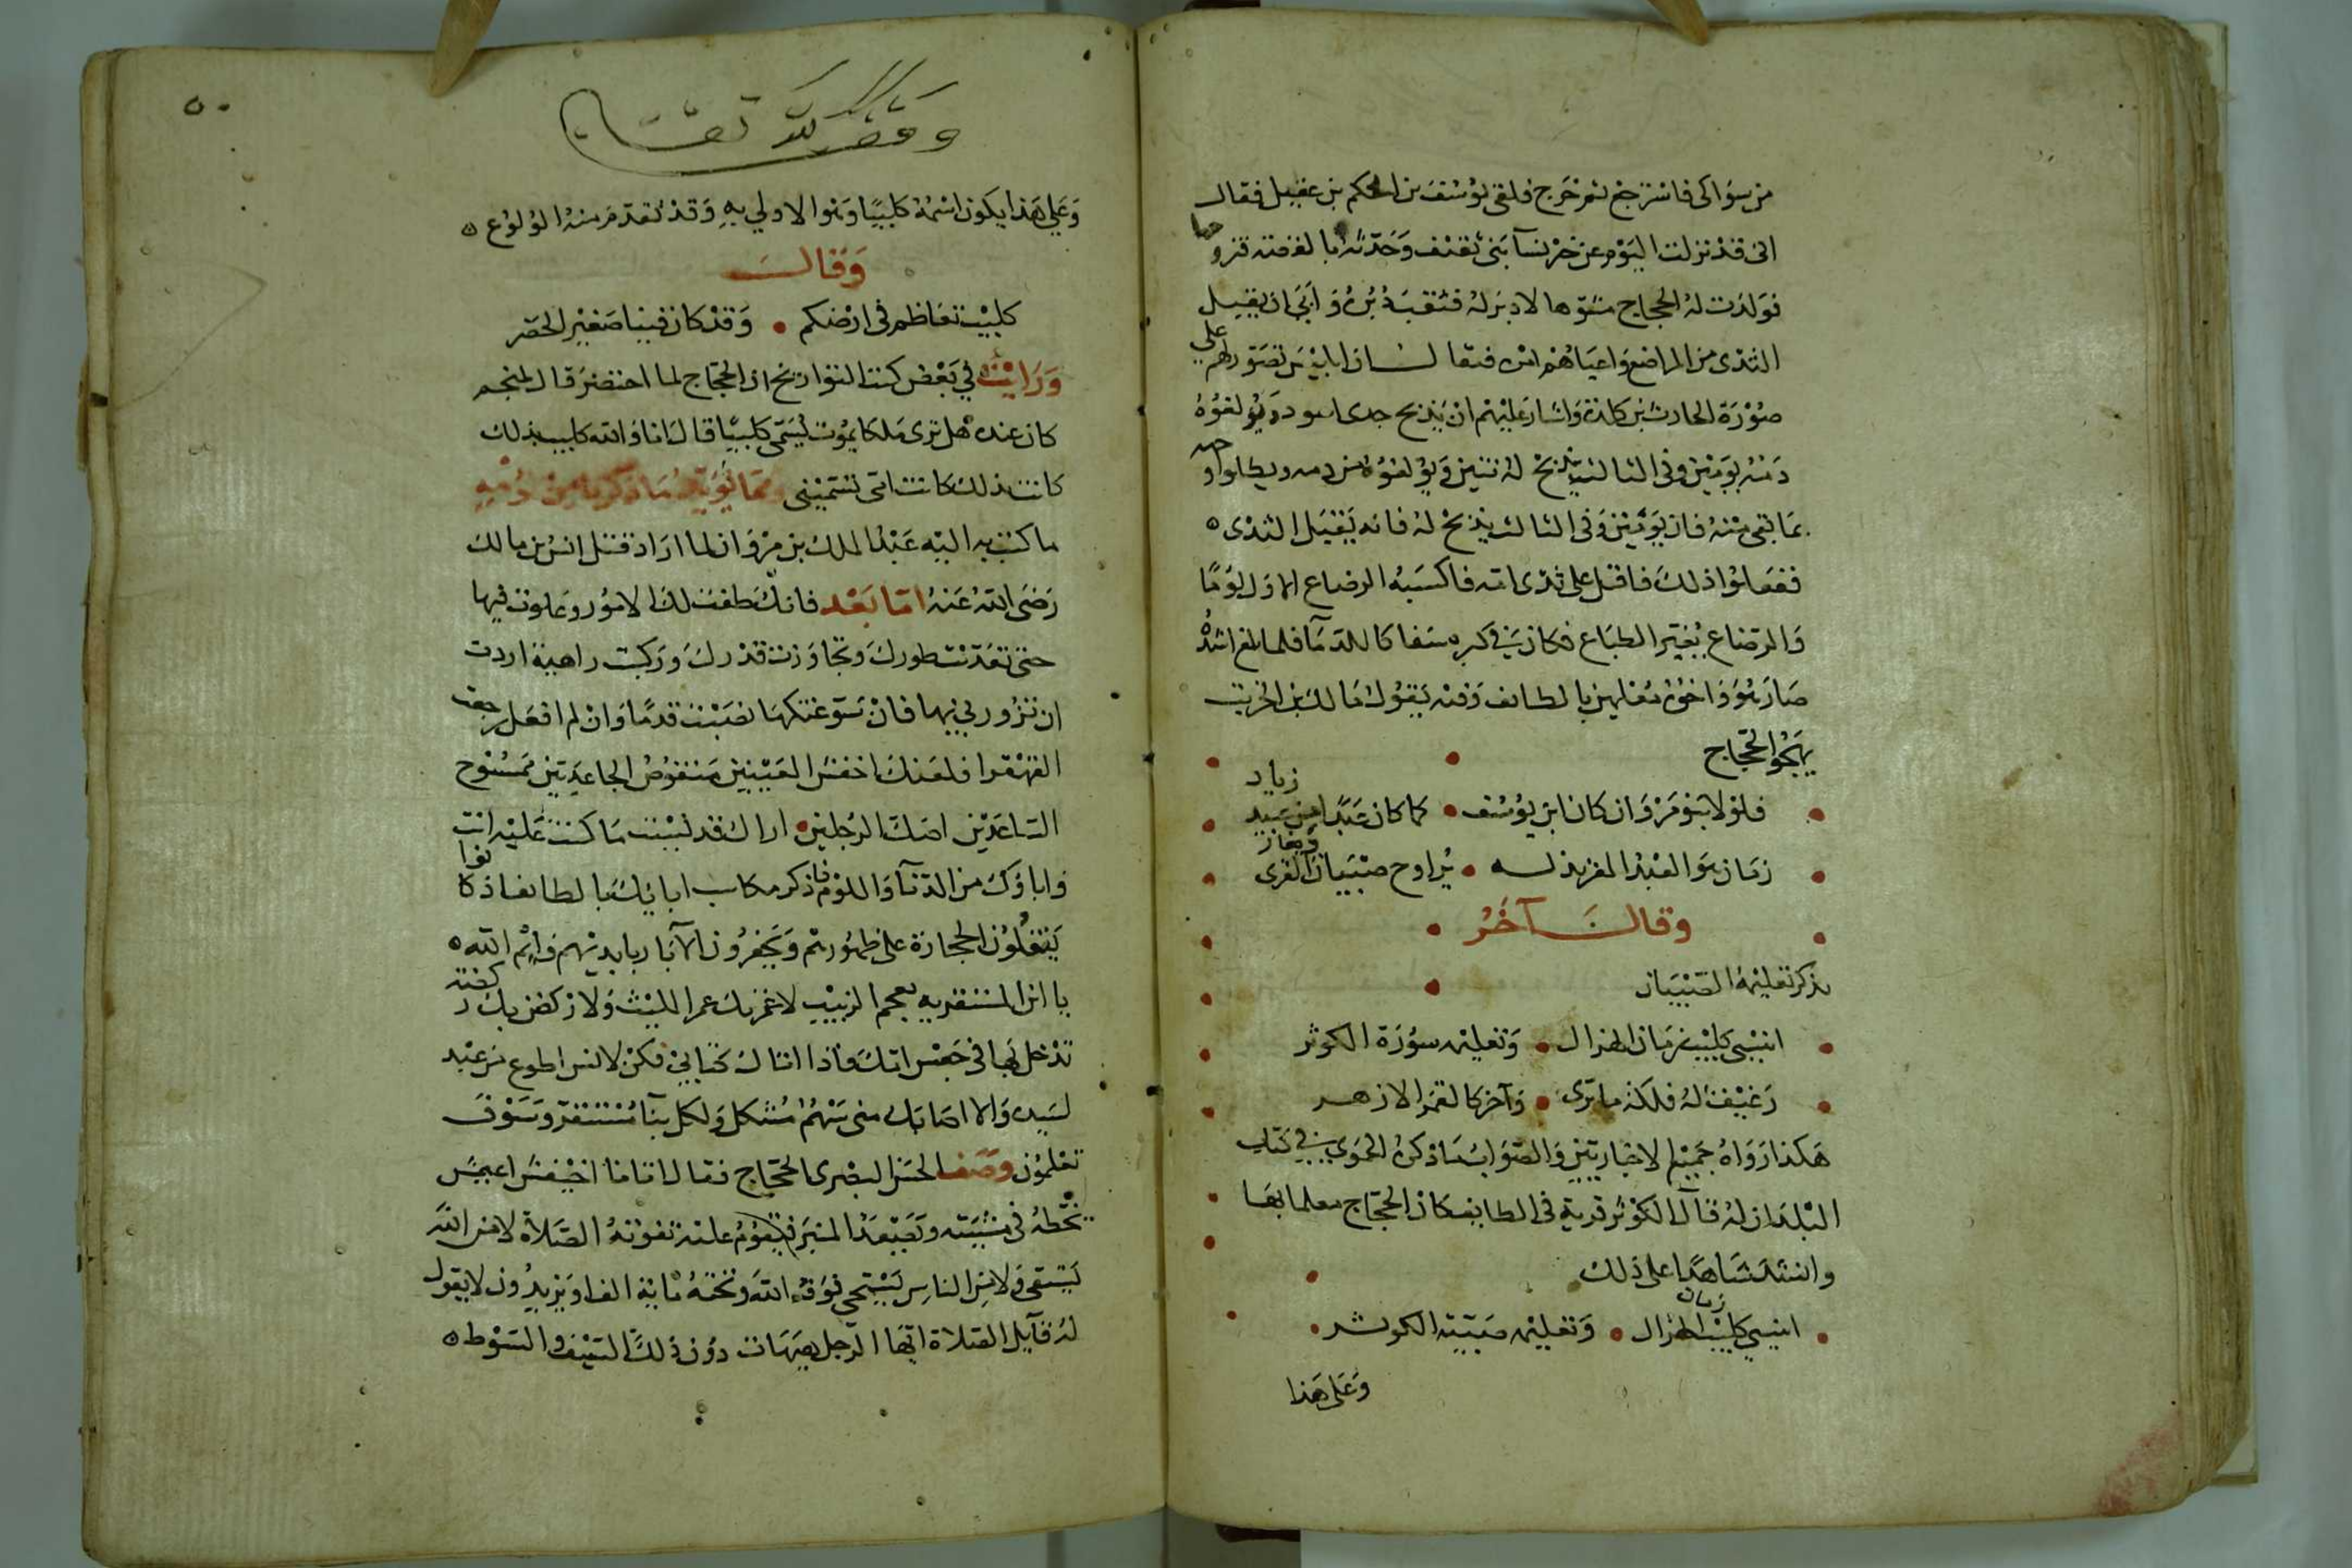 من سواكى فاسترجع ثم خرج فلقى يوسف بن الحكم بن عقيل فقال
انى قد نزلت اليوم عن خير نسآ بنى ثقيف وحدثه بالغضة فتزوجها
فولدت له الحجاج مشوها لا دبر له فثقب دبره وابى ان يقبل
الثدى من المراضع واعياهم امره فيقال ان ابليس تصور لهم على
صورة الحارث بن كلدة واشار عليهم ان يذبح جدى اسود ويولغوه
دمه يومين وفى الثالث يذبح له تيس ويولغوه من دمه ويطلوا وجهه
بما بقى منه فان يومين وفى الثالث يذبح له فانه يقبل الثدى ه
ففعلوا ذلك فاقبل على ثدى امه فاكسبه الرضاع الاول لوما
والرضاع يغير الطباع فكان فى كبره سفاكا للدمآ فلما بلغ اشده
صار هو واخوه معلمين بالطائف وفيه يقول مالك بن الريب
يهجو الحجاج
فلولا بنو مروان كان ابن يوسف • كما كان عبدا من عبيد زياد
زمان هو العبد المقر بذله • يراوح صبيان القرى ويغاز
وقال آخر
يذكر تعليمه الصبيان
اينسى كليب زمان الهزال • وتعليمه سورة الكوثر
رغيف له فلكة ما ترى • وآخر كالقمر الازهر
هكذا رواه جميع الاخباريين والصواب ما ذكره الحموى فى كتاب
البلدان له قال الكوثر قرية فى الطايف كان الحجاج معلما بها
وانشد شاهدا على ذلك
اينسى كليب زمان الهزال • وتعليمه صبية الكوثر
وعلى هذا
وقف لله تعالى
٥٠
وعلى هذا يكون اسمه كليبا وهو الاولى به وقد تقدم منه الولوع ه
وقال
كليب تعاظم فى ارضكم • وقد كان فينا صغير الخصر
ورايت فى بعض كتب التواريخ ان الحجاج لما احتضر قال لمنجم
كان عنده هل ترى ملكا يموت يسمى كليبا قال انا والله كليب بذلك
كانت بذلك كانت امى تسمينى ومما يؤيد ما ذكرناه من ذمه
ما كتب به اليه عبد الملك بن مروان لما اراد قتل انس بن مالك
رضى الله عنه اما بعد فانك طفت لك الامور وعلوت فيها
حتى تعديت طورك وتجاوزت قدرك وركبت داهية اردت
ان تزورنى بها فان سوغتكها نصبت قدما وان لم افعل رجعت
القهقرا فلعنك اخفش العينين منقوص الجاعرتين ممسوح
الساعدين اصك الرجلين • اراك قد نسيت ما كنت عليه انت
واباؤك من الدنآ واللؤم فاذكر مكاسب ابائك بالطائف اذ كانوا
ينقلون الحجارة على ظهورهم ويحفرون الابار بايديهم وايم الله ه
يا ابن المستفرمه بعجم الزبيب لاغمزنك غمز الليث ولاركضنك ركضة
تدخل بها فى جعس امك فاذا اتاك كتابى فكن لانس اطوع من عبد
لسيده والا اصابك منى سهم مثكل ولكل نبآ مستقر وسوف
تعلمون وصف الحسن البصرى الحجاج فقال اتانا اخيفش اعيمش
يخطر فى مشيته ويصعد المنبر فيقوم عليه تفوته الصلاة لا من الله
يتقى ولا من الناس يستحى فوقه الله وتحته ماية الف او يزيدون لا يقول
له قآيل الصلاة ايها الرجل هيهات دون ذلك السيف والسوط ه